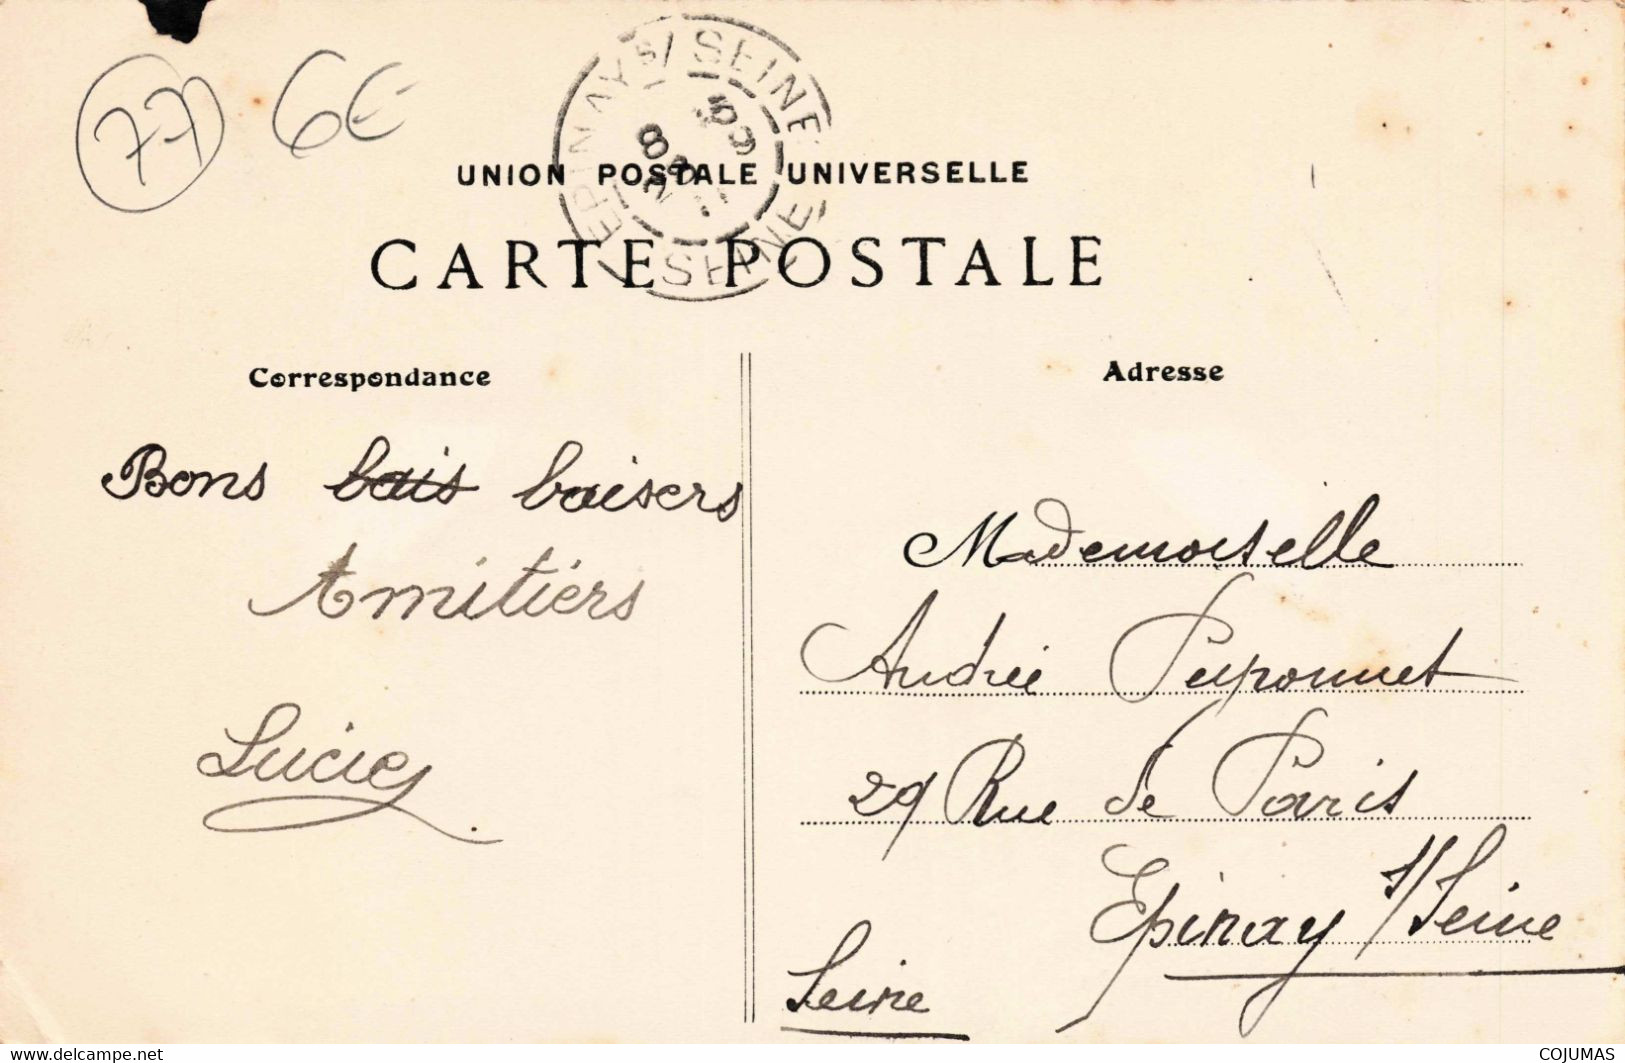 77 6€
EPINAY S/ SEINE
SEINE
UNION POSTALE UNIVERSELLE
CARTE POSTALE
Correspondance
Adresse
Bons bais baisers
Amitiérs
Lucie
Mademoiselle
Andrée Peyronnet
29 Rue de Paris
Epinay s/ Seine
Seine
www.delcampe.net
COJUMAS